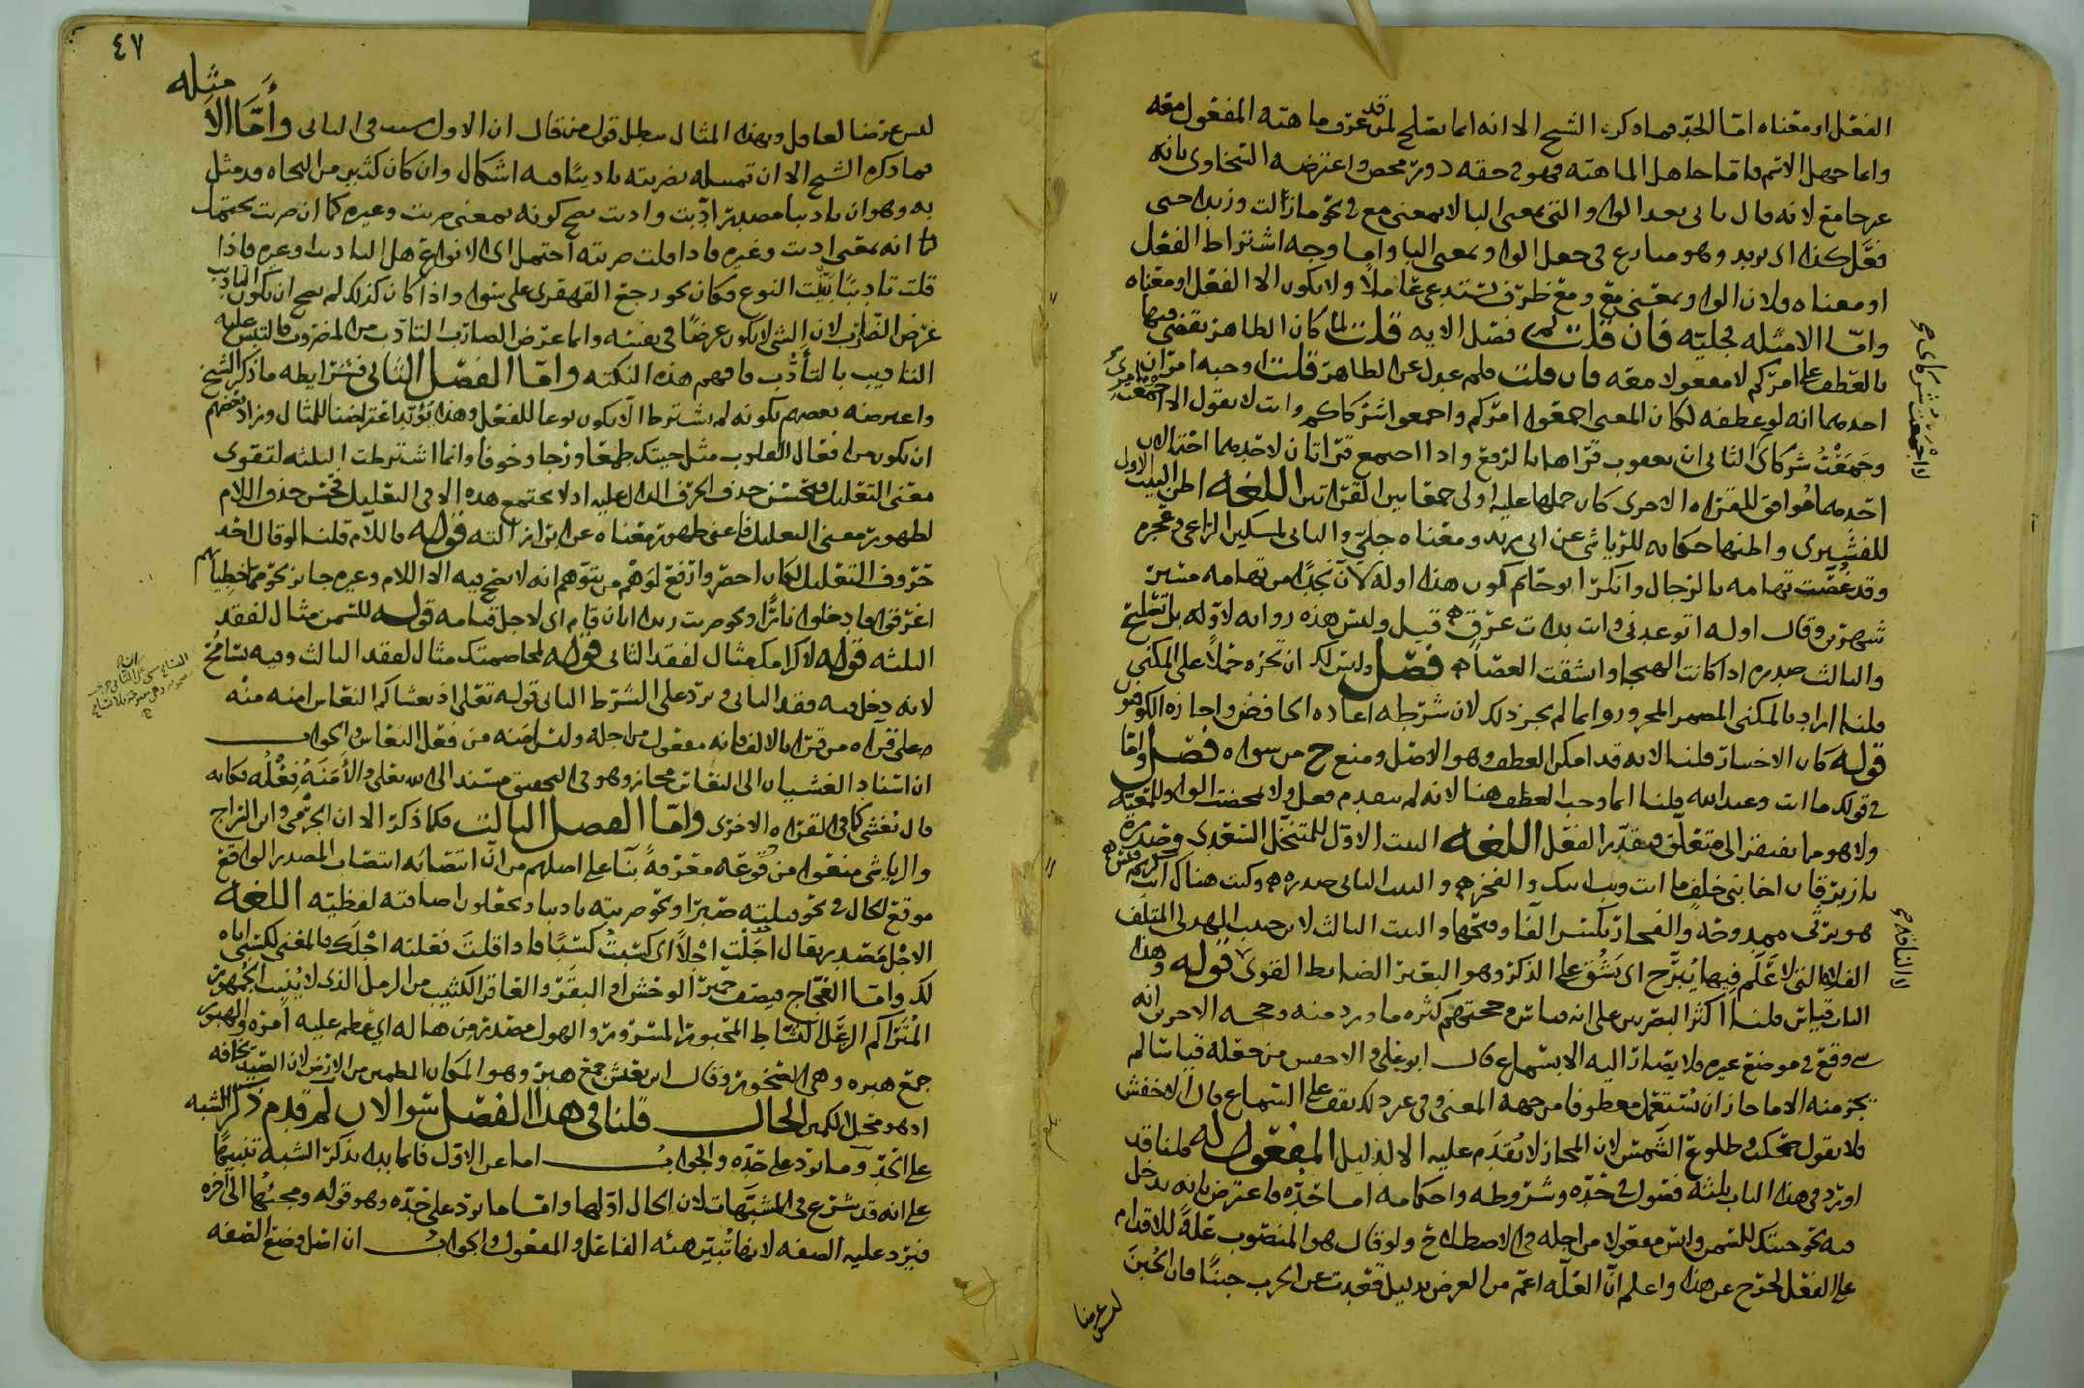 الفعل او معناه اما الحد فما ذكره الشيخ الا انه انما يصلح لمن قد عرف ماهية المفعول معه
وانما جهل الاسم فاما جاهل الماهية فهو في حقه دور محض واعترضه السخاوي بانه
غير جامع لانه قال ياتي بعد الواو التي بمعنى البا لا بمعنى مع في نحو ما زالت وزيد احتى
فعل كذا اي بزيد وهو منازع في جعل الواو بمعنى البا واما وجه اشتراط الفعل
او معناه فلان الواو بمعنى مع ومع ظرف تستدعي عاملا ولا يكون الا الفعل او معناه
واما الامثلة فجلية فان قلت لم فصل الاية قلت لما كان الظاهر يقضي فيها
بالعطف على امركم لا مفعولا معه فان قلت فلم عدل عن الظاهر قلت لوجهين
احدهما انه لو عطفه لكان المعنى اجمعوا امركم واجمعوا شركاكم وانت لا تقول الا اجمعت امري
وجمعت شركاي الثاني ان يعقوب قراها بالرفع واذا اجتمع قراتان لاحدهما احتمالان
احدهما موافق للقراه الاخرى كان حملها عليه اولى جمعا بين القراتين اللغه اظن البيت الاول
للقشيري واظنها حكايه للرياشي عن ابي زيد ومعناه جلي والثاني لمسكين الراعي وعجزه
وقد غصت تهامه بالرجال وانكر ابو حاتم كون هذا اوله لان نجدا من تهامه مسيره
شهرين وقال اوله اتوعدني وانت بذات عرق قيل وليس هذه روايه لاوله بل تغليط
والثالث صدره اذا كانت الهيجا وانشقت العصا فصل وليس لك ان تجره حملا على المكني
قلنا اراد بالمكني المضمر المجرور وانما لم يجز ذلك لان شرطه اعاده الخافض واجازه الكوفيون
قوله كان الاختيار قلنا لانه قد امكن العطف وهو الاصل ومنع ح من سواه فصل واما
في قولك ما انت وعبد الله قلنا انما وجب العطف هنا لانه لم يتقدم فعل ولا تمحضت الواو للمعيه
ولا هو ما يفتقر الى متعلق فيقدر الفعل اللغه البيت الاول للمتنخل السعدي وصدره
يا زبرقان اخا بني خلف ما انت ويب ابيك والفخر والبيت الثاني صدره وكنت هناك انت كريم قيس
هو يرثي ممدوحه والفجار بكسر الفا وفتحها والبيت الثالث لابن حبيب الهذلي المتلف
الفلاة التي لا علم فيها يبرح اي يشق على الذكر وهو البعير الضابط القوي قوله وهذا
الباب قياس قلنا اكثر البصريين على انه قياس وحجتهم كثره ما ورد منه وحجه الاخرين انه
شي وقع في موضع غيره فلا يصار اليه الا بسماع قال ابو علي في الاخفش من جعله قياسا لم
يجز منه الا ما جاز ان يستعمل معطوفا من جهه المعنى وفي غير ذلك يقف على السماع قال الاخفش
فلا يقول ضحكت وطلوع الشمس لان المجاز لا يقدم عليه الا لدليل المفعول له قلنا قد
اورد في هذا الباب ثلثه فصول في حده وشروطه واحكامه اما حده فاعترض بانه يدخل
فيه نحو جيتك للسمن وليس مفعولا من اجله في الاصطلاح ولو قال هو المنصوب علة للاقدام
على الفعل لخرج عن هذا واعلم ان العله اعم من الغرض بدليل قعدت عن الحرب جبنا فان الجبن
ليس غرضا
اجمعت شركاي
الناقه
٤٧
ليس غرضا لعاقل وبهذا المثال يبطل قول من قال ان الاول سبب في الثاني واما الامثله
فما ذكره الشيخ الا ان تمثيله بضربته تاديبا فيه اشكال وان كان كثير من النحاه قد مثل
به وهو ان تاديبا مصدر ادبت وادبت يصح كونه بمعنى ضربت وغيره كما ان ضربت يحتمل
انه بمعنى ادبت وغيره فاذا قلت ضربته احتمل اي الانواع هل التاديب او غيره فاذا
قلت تاديبا بينت النوع فكان نحو رجع القهقرى على سوا واذا كان كذلك لم يصح ان يكون التاديب
غرض الضارب لان الشي لا يكون غرضا في نفسه وانما غرض الضارب التادب من المضروب فالتبس عليه
التاديب بالتأدب فافهم هذه النكته واما الفصل الثاني فشرايطه ما ذكر الشيخ
واعترضه بعضهم بكونه لم يشترط الا يكون نوعا للفعل وهذا يؤيد اعتراضنا للمثال وزاد بعضهم
ان يكون من افعال القلوب مثل جيتك طمعا ورجا وخوفا وانما اشترطت الثلثه لتقوى
معنى التعليل فيحسن حذف الحرف الدال عليه اذ لا يجتمع هذه الا في التعليل فحسن حذف اللام
لظهور معنى التعليل فاغنى ظهور معناه عن ابراز الته قوله باللام قلنا لو قال احد
حروف التعليل لكان احصر وارفع لوهم من يتوهم انه لا يصح فيه الا اللام وغيره جايز نحو مما خطيئاتهم
اغرقوا فادخلوا نارا ونحو ضربت زيدا بان قام اي لاجل قيامه قوله للسمن مثال لفقد
الثلثه قوله لاكرامك مثال لفقد الثاني قوله لمخاصمتك مثال لفقد الثالث وفيه تسامح
لانه دخل فيه فقد الثاني ويرد على الشرط الثاني قوله تعالى اذ يغشاكم النعاس امنه منه
على قراه من قرا بالالف فانه مفعول من اجله وليس امنه من فعل النعاس والجواب
ان اسناد الغشيان الى النعاس مجاز وهو في التحقيق مستند الى الله تعالى والأمنة فعله فكانه
قال يغشي كما في القراه الاخرى واما الفصل الثالث فكما ذكر الا ان الجرمي وابن السراج
والرياشي منعوا من وقوعه معرفة بنا على اصلهم من ان انتصابه انتصاب المصدر الواقع
موقع الحال في نحو قتلته صبرا ونحو ضربته تاديبا ويجعلون اضافته لفظيه اللغه
الاجل مصدر يقال اجلت اجلا اي كسبت كسبا فاذا قلت فعلته اجلك فالمعنى لكسبي اياه
لك واما العجاج فيصف حمير الوحش او البقر والعاقر الكثيب من الرمل الذي لا ينبت الجمهور
المتراكم الزعل النشاط المحبور المسرور والهول مصدر من هاله اي عظم عليه امره والهبور
جمع هبره وهي الصخور وقال ابن يعيش جمع هبر وهو المكان المطمين من الارض لان الصيد يخافه
اذ هو محل المكمن الحال قلنا في هذا الفصل سوالان لم قدم ذكر الشبه
على الحد وما يرد على حده والجواب اما عن الاول فانما بدا بذكر الشبه تنبيها
على انه قد شرع في المشبهات لان الحال اولها واما ما يرد على حده وهو قوله ومجيئها الى اخره
فيرد عليه الصفه لانها تبين هيئه الفاعل والمفعول والجواب ان اصل وضع الصفه